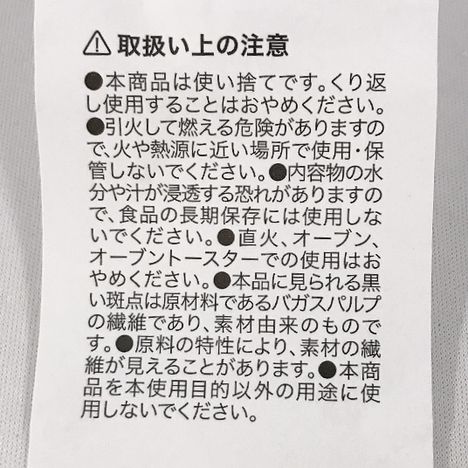 ⚠ 取扱い上の注意
●本商品は使い捨てです。くり返
し使用することはおやめください。
●引火して燃える危険がありますの
で、火や熱源に近い場所で使用・保
管しないでください。●内容物の水
分や汁が浸透する恐れがありますの
で、食品の長期保存には使用しな
いでください。●直火、オーブン、
オーブントースターでの使用はお
やめください。●本品に見られる黒
い斑点は原材料であるバガスパルプ
の繊維であり、素材由来のもので
す。●原料の特性により、素材の繊
維が見えることがあります。●本商
品を本使用目的以外の用途に使
用しないでください。